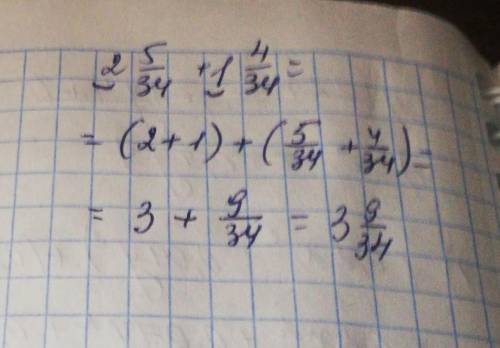 2 5/34 + 1 4/34 =
= (2 + 1) + (5/34 + 4/34) =
= 3 + 9/34 = 3 9/34